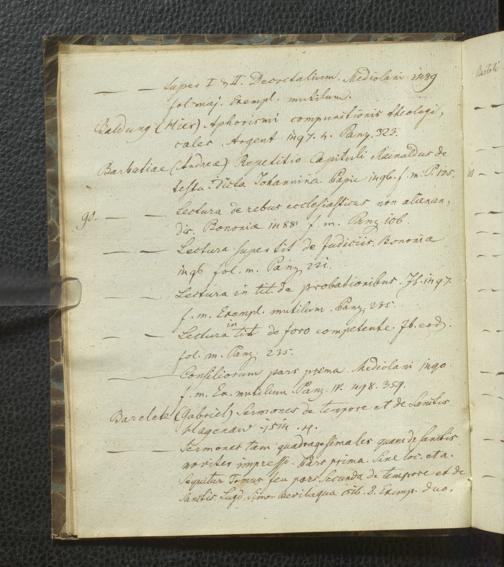 — — Super I & II. Decretalium. Mediolani 1489
fol. maj. Exempl. mutilum.
Baldung (Hier) Aphorismi compunctionis theologi,
cales. Argent 1497. 4. Panz. 323.
Barbatiae (Andrea) Repetitio Capituli Rainaldus de
testa: Dicta Johannina Papie 1496. f. m. P.
90. — — Lectura de rebus ecclesiasticis non alienan,
dis. Bononia 1488 f. m. Panz 106.
— — Lectura super tit de Judiciis. Bononia
1496 fol. m. Panz. 221.
— — Lectura in tit. de probationibus. Ib. 1497.
f. m. Exempl. mutilum. Panz. 235.
— — Lectura in tit de foro competente. Ib. eod.
fol. m. Panz. 235.
— — Consiliorum pars prima. Mediolani 1490
f. m. Ex. mutilum Panz. IV. 498. 359.
Barelete (Gabriel) Sermones de tempore et de Sanctis
Hagenaw 1514. 4.
— — Sermones tam quadragesimales quam de Sanctis
noviter impressi. Pars prima. Sine loc. et a.
Sequitur Tomus seu pars Secunda de tempore et de
Sanctis Lugd. Simon Bevilaqua 1516. 8. Exemp. duo.